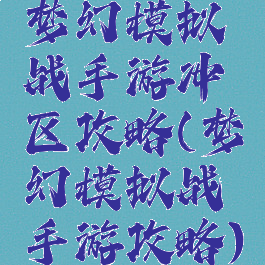 梦幻模拟
战手游冲
区攻略(梦
幻模拟战
手游攻略)